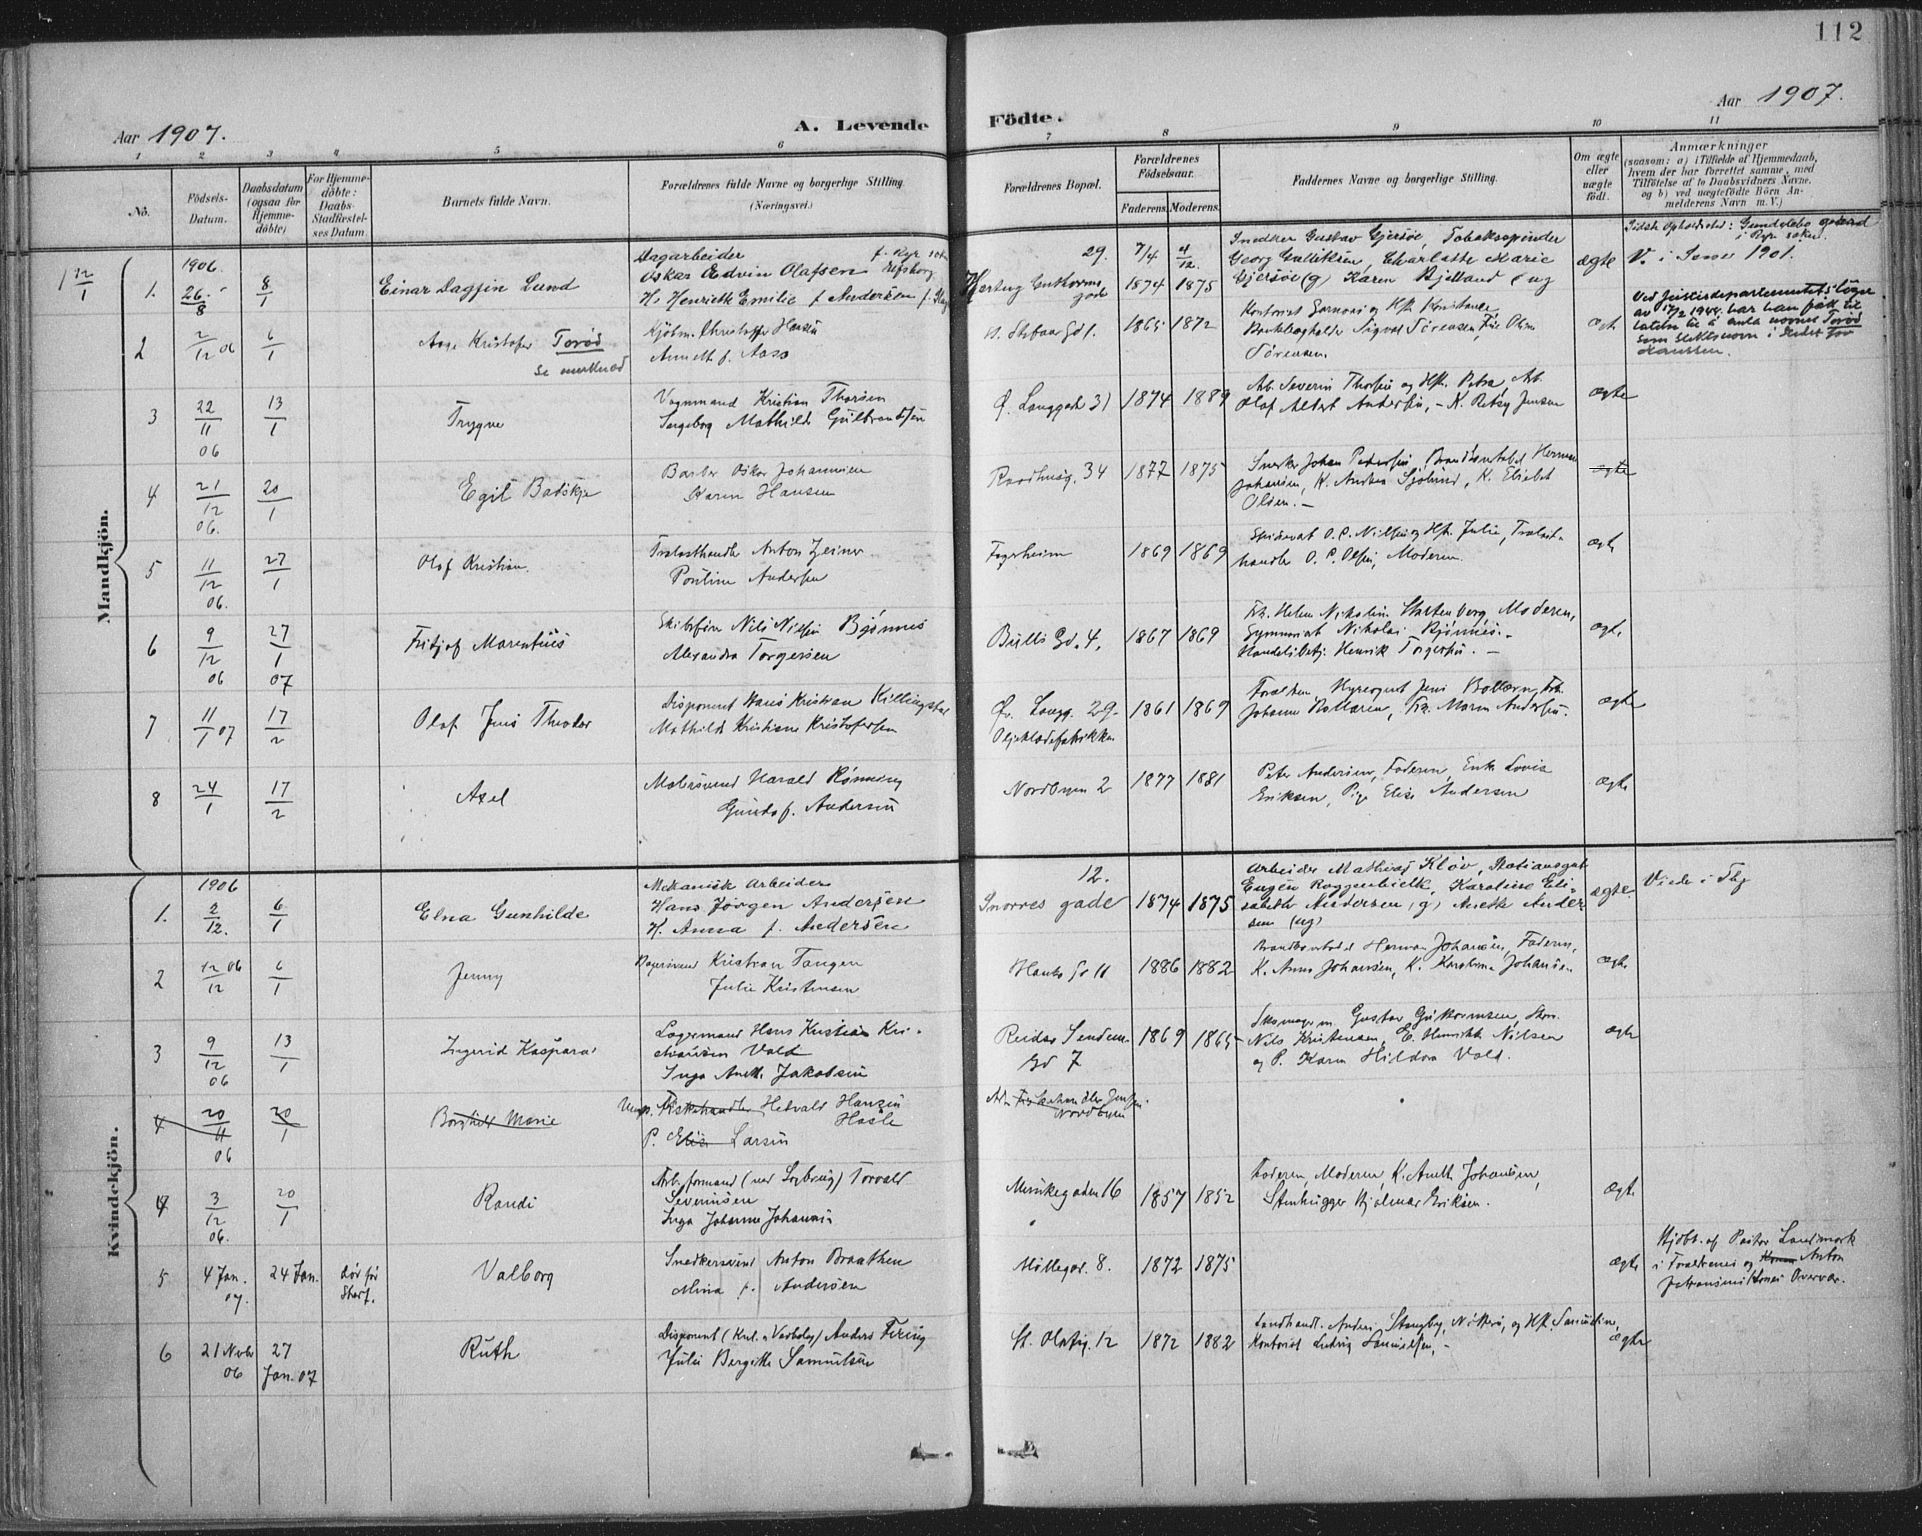 112
Aar 1907.
A. Levende Födte.
Aar 1907.
1 2 3 4 5 6 7 8 9 10 11
No.
Födsels-Datum.
Daabsdatum (ogsaa for Hjemme-döbte)
For Hjemme-döbte: Daabs-Stadfæstel-ses Datum
Barnets fulde Navn.
Forældrenes fulde Navne og borgerlige Stilling
(Næringsvei.)
Forældrenes Bopæl.
Forældrenes Födselsaar.
Faderens. Moderens.
Faddernes Navne og borgerlige Stilling.
Om ægte eller uægte födt.
Anmærkninger
(saasom: a) i Tilfælde af Hjemmedaab, hvem der har forrettet samme, med Tilföielse af to Daabsvidners Navne, og b) ved uægtefödte Börn An-melderens Navn m. V.)
Mandkjön.
1. 1906. 26/8 8/1 Einar Dagfin Lund
Dagarbeider
Oskar Edvin Olafsen
H. Henriette Emilie f. Andersen
29.
Hertug Guthorms gade
7/4 1874 4/12. 1875
Snedker Gustav Gjersöe, Tobaksspinder
Georg Gulliksen, Charlotte Marie
Gjersöe (g) Karen Bjelland (ug
ægte
V. i Sem 1901.
2 2/12 06 6/1 Aage Kristofer Torød
Se merknad
Kjøbm. Christoffer Hansen
Annett f. Aasø
1865 1872
Kontorist
Bookholder Sigvat Sörensen, Frk Olga
Sörensen.
ægt.
Ved Justisdepartementets bevilg
av 17/2 1944 har han fått til
latelse til å anta navnet Torød
som slektsnavn i stedet for
Hanssen.
3 22/11 06 13/1 Trygve
Vognmand Kristian Thorsen
Ingeborg Mathilde Gulbrandsen
Ø. Langgade 31 1874 1889
Arb. Severin Thorsen og Hst. Petra, Arb.
Olaf Albert Andersen, - K. Betzy Jensen
ægte
4 21/12 06. 20/1 Egil Badskjær
Barber Oskar Johannesen
Karen Hansen
Raadhusg. 34 1877 1875
Snekker Johan Pedersen, Brandkonstabel Herman
Johansen, K. Andrea Sjölund, K. Elisabet
Olsen. -
ægte
5 11/12 06. 27/1 Olaf Kristian.
Trælasthandler Anton Zeiner.
Pauline Andersen
Fagerheim 1869 1869
O. C. Nilsen og Hst. Julie, Trælast-
handler O. C. Olsen, Moderen.
ægte
6 9/12 06 27/1 07 Fritjof Marentius
Skibsfører Nils Nilsen Bjønnes
Alexandra Torgersen
Bulls Gd. 4. 1867 1869
Frk. Helene Nikoline Stoltenberg, Moderen,
Gymnasiast Nikolai Bjönnes. -
Handelsbetj. Henrik Torgersen. -
ægte
7 11/1 07 17/2 Olaf Jens Theodor
Disponent Hans Kristian Killingstad
Mathilde Kristiane Kristoffersen
Øv. Langg. 29.
Oljeklædefabrikken
1861 1869
Forældrene, Jens Bollæren, Frk.
Johanne Bollæren, Frk. Maren Andersen.
ægte
8 24/1 17/2 Axel
Malersvend Harald Rönning
Gunda f. Andersen
Nordbyen 2 1877 1881
Peter Andersen, Faderen, Enke Lovise
Eriksen, Pige Elise Andersen
ægte
Kvindekjön.
1. 1906 2/12. 6/1 Elna Gunhilde
Mekanisk Arbeider
Hans Jörgen Andersen
H. Anna f. Andersen
12.
Snorres gade 1874 1875
Arbeider Mathias Klöv, Stationsgut
Eugen Roggenbielk, Karoline Eli-
sabeth Andersen (g) Anette Ander
sen (ug)
ægte.
Viede i Tbg
2 12/12 06 6/1 Jenny
Bagersvend Kristian Tangen
Julie Kristensen
1886 1882
Brandkonstabel Herman Johansen, Faderen,
K. Anna Johansen, K. Karoline Johansen
ægte
3 9/12 06 13/1 Ingerid Kaspara
Lagermand Hans Kristian Kri-
stiansen Vold
Inga Anette Jakobsen
Reidar Sendem.
Gd 7 1869 1865
Skomager m Gustav Guttormsen, Skom.
Nils Kristensen, E. Henrikke Nilsen
og P. Karen Hildora Vold.
ægte
4 20/11 06 20/1 Borghild Marie
Ungk. Fiskehandler Hetvald Hansen
Hasle
P. Elise Larsen
Nordbyen
4 3/12 06. 20/1 Randi
Arb. formand (ved Torvald
Severinsen
Inga Johanne Johannes.
Munkegaden 16 1857 1852
Faderen, Moderen, K. Anette Johansen,
Stenhugger Hjalmar Eriksen.
ægte
5 4 Jan. 07. 24 Jan. död för Stadf. Valborg
Snedkersvend Anton Braathen
Mina f. Andersen
Möllegd. 8. 1872 1875
ægte
Hjdbt. af Pastor Landmark
i Forældrenes og Anton
6 21 Novbr 06 27 Jan. 07 Ruth
Disponent Anders Firing
Julie Bergitte Samuelsen
St. Olafsg. 12 1872 1882
Landhandl. Anders Stangeby, Nötterö, og Hst. Samueline,
Kontorist Ludvig Samuelsen, -
ægte